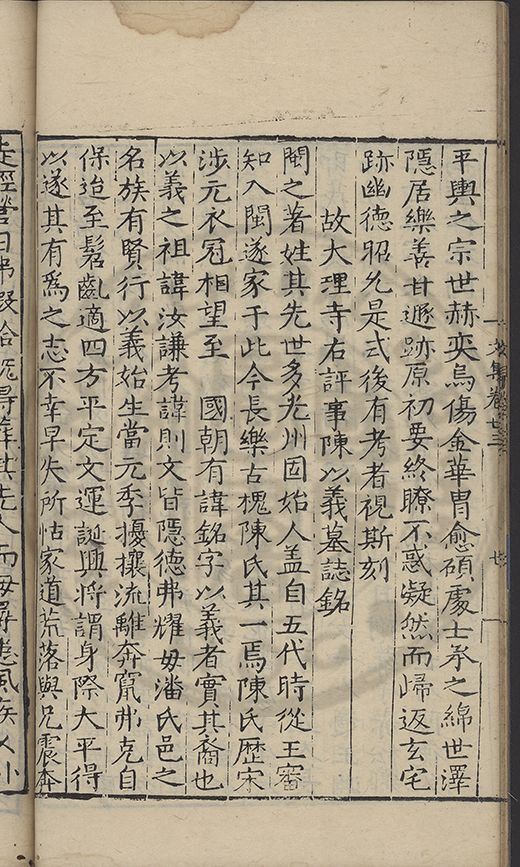 平輿之宗世赫奕烏傷金華胄愈碩處士承之綿世澤
隱居樂善甘遯跡原初要終瞭不惑凝然而歸返玄宅
跡幽德昭允是式後有考者視斯刻
故大理寺右評事陳以義墓誌銘
閩之著姓其先世多光州固始人盖自五代時從王審
知入閩遂家于此今長樂古槐陳氏其一焉陳氏歷宋
涉元衣冠相望至 國朝有諱銘字以義者實其裔也
以義之祖諱汝謙考諱則文皆隱德弗耀毋潘氏邑之
名族有賢行以義始生當元季擾攘流離奔竄弗克自
保迨至髫齔適四方平定文運誕興將謂身際大平得
以遂其有爲之志不幸早失所怙家道荒落與兄震奔